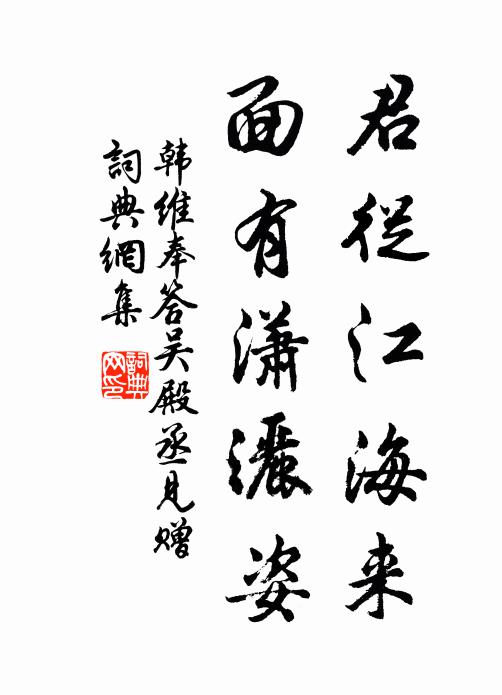 君從江海来
面有瀟灑姿
韩維奉答吴殿丞見贈
詞典網集
詞典
网印